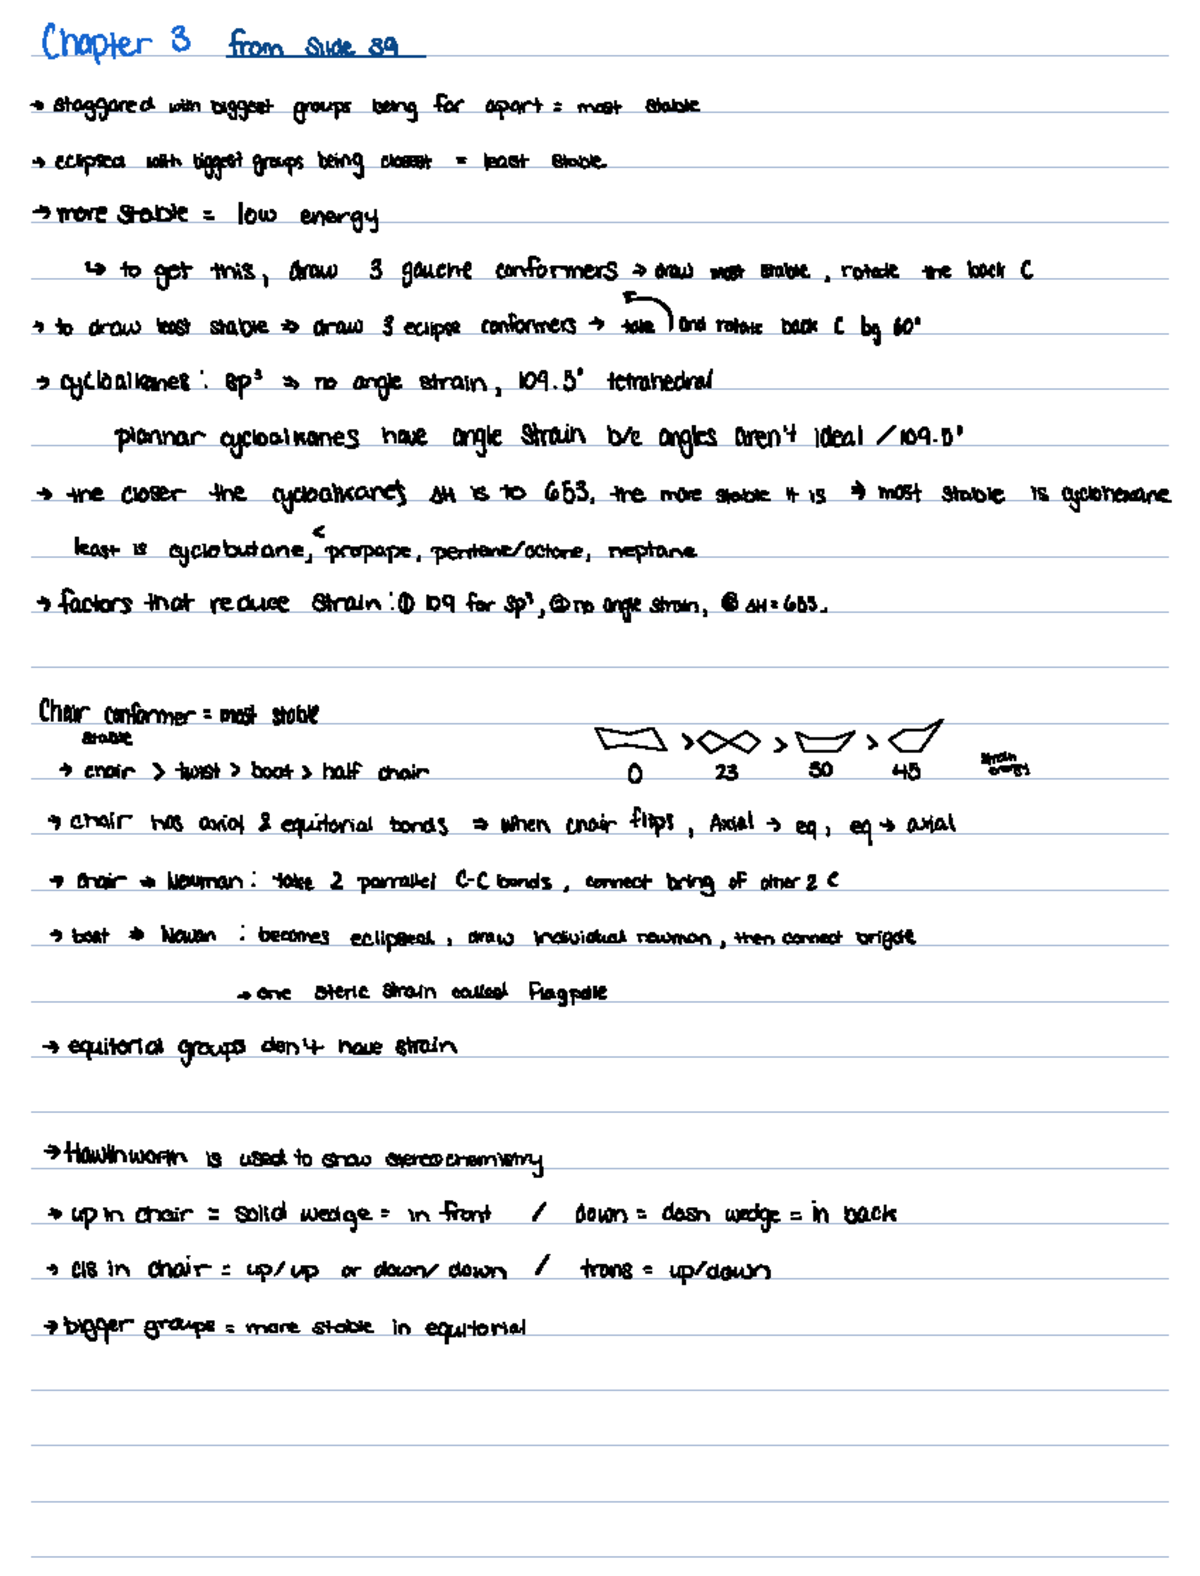 Chapter 3 from Slide 39
→ staggared with biggest groups being far apart = most stable
→ eclipsed with biggest groups being closest = least stable
→ more stable = low energy
↳ to get this, draw 3 gauche conformers → draw most stable, rotate the back C
→ to draw least stable ⇒ draw 3 eclipse conformers → take and rotate back C by 60°
→ cycloalkanes: sp³ ⇒ no angle strain, 109.5° tetrahedral
plannar cycloalkanes have angle strain b/c angles aren't ideal / 109.5°
→ the closer the cycloalkanes ΔH is to 653, the more stable it is → most stable is cyclohexane
least is cyclobutane, < propape, pentane/octane, heptane
→ factors that reduce strain: ① 109 for sp³, ② no angle strain, ③ ΔH = 653.
Chair conformer = most stable
stable
→ chair > twist > boat > half chair
> > >
0 23 30 45 strain energy
→ chair has axial & equitorial bonds ⇒ when chair flips, Axial → eq, eq → axial
→ chair → Newman: take 2 parrallel C-C bonds, connect bring of other 2 C
→ boat → Newan: becomes eclipsed, draw individual newman, then connect brigde
→ one steric strain called Flagpole
→ equitorial groups don't have strain
→ Hawlhworth is used to show stereochemistry
→ up in chair = solid wedge = in front / down = dash wedge = in back
→ cis in chair = up/up or down/down / trans = up/down
→ bigger groups = more stable in equitorial